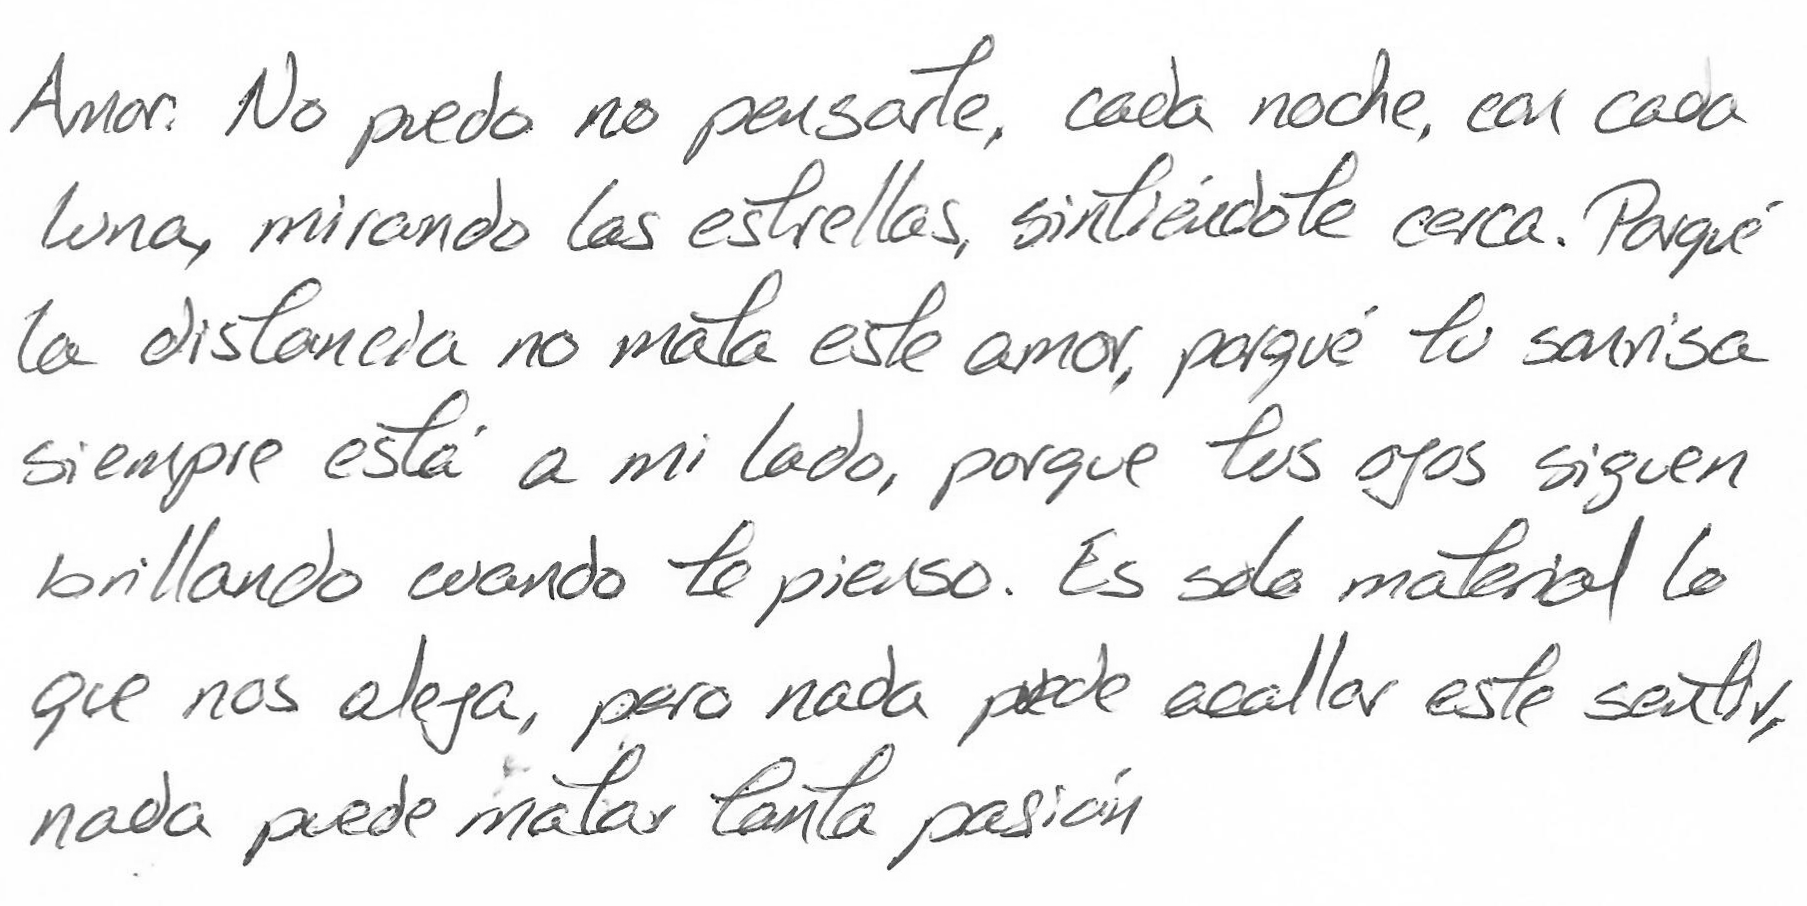 Amor. No puedo no pensarte, cada noche, con cada
luna, mirando las estrellas, sintiéndote cerca. Porqué
la distancia no mata este amor, porqué tu sonrisa
siempre está a mi lado, porque tus ojos siguen
brillando cuando te pienso. Es solo material lo
que nos aleja, pero nada puede acallar este sentir,
nada puede matar tanta pasión